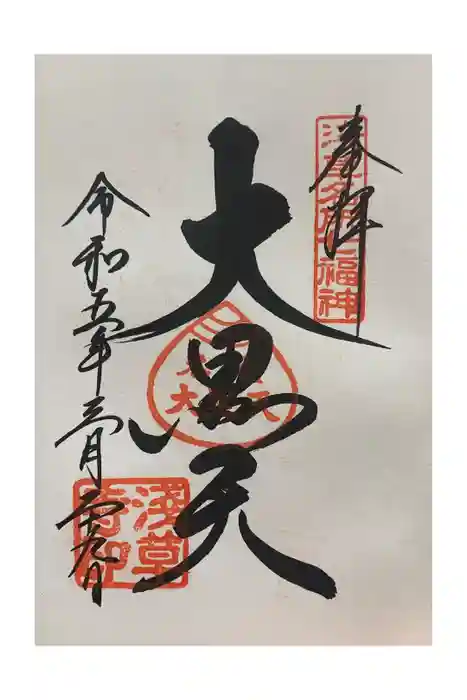 奉拝
浅草名所七福神
大黒天
令和五年三月二十九日
浅草
寺印